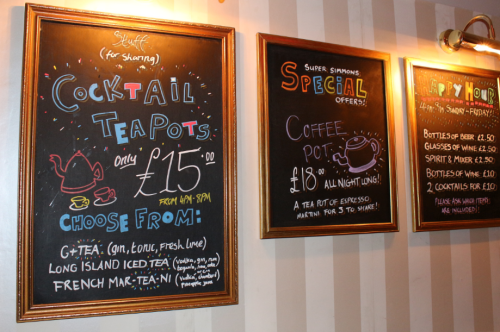 Stuff
(for sharing)
COCKTAIL
TEAPOTS
Only £15.00
FROM 4PM-8PM
CHOOSE FROM:
G+TEA (gin, tonic, fresh lime)
LONG ISLAND ICED TEA (vodka, gin, rum
FRENCH MAR-TEA-NI (vodka, chambord
pineapple juice
SUPER SIMMONS
SPECIAL
OFFERS!
COFFEE
POT
£18.00 ALL NIGHT LONG!
A TEA POT OF ESPRESSO
MARTINIS FOR 3 TO SHARE!
APPY HOUR
SUNDAY-FRIDAY!!
BOTTLES OF BEER £2.50
GLASSES OF WINE £2.50
SPIRIT & MIXER £2.50
BOTTLES OF WINE £10
2 COCKTAILS FOR £10
PLEASE ASK WHICH ITEMS
ARE INCLUDED!